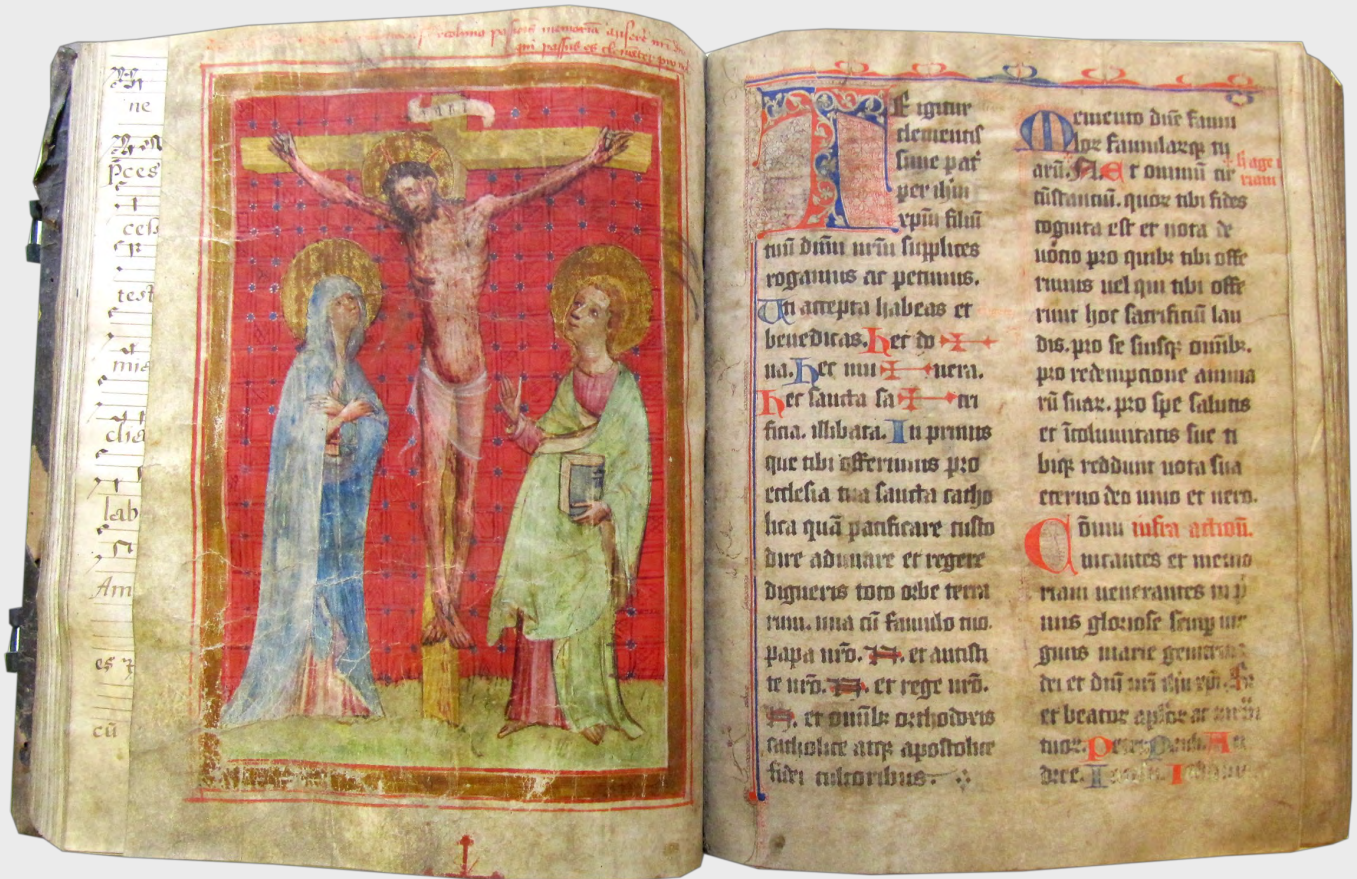 passionis memoria
passus es clementer
INRI
ne
p̄ces
celſ
test
mis
cha
lab
Am
es ⁊
cū
TE igitur
clementiſſ
sime pat̄
per ihm
xpm̄ filiū
tuū dn̄m nr̄m supplices
rogamus ac petimus.
Uti accepta habeas et
benedicas. hec do ✠
na. hec mu ✠ nera.
hec sancta sa ✠ cri
ficia. illibata. In primis
que tibi offerimus pro
ecclesia tua sancta catho
lica quā pacificare custo
dire adunare et regere
digneris toto orbe terra
rum. una cū famulo tuo.
papa nr̄o. N. et antisti
te nr̄o. N. et rege nr̄o.
N. et omībꝫ orthodoxis
catholice atqꝫ apostolice
fidei cultoribus.
Memento dn̄e famu
loꝝ famularūqꝫ tu
arū. N. Et omniū cir
cūstanciū. quoꝝ tibi fides
cognita est et nota de
uocio pro quibꝫ tibi offe
rimus uel qui tibi offe
runt hoc sacrificiū lau
dis. pro se suisqꝫ omībꝫ.
pro redempcione anima
rū suaꝝ. pro spe salutis
et īcolumitatis sue ti
biqꝫ reddunt uota sua
eterno deo uiuo et uero.
Cōmu infra actioū.
Cōicantes et memo
riam uenerantes in p̄
mis gloriose semp uir
ginis marie genitricis
dei et dn̄i nr̄i ihu xpi. Sꝫ
et beatoꝝ aploꝝ ac mr̄m
tuoꝝ. Petri. Pauli. An
dree. Iacobi. Iohannis